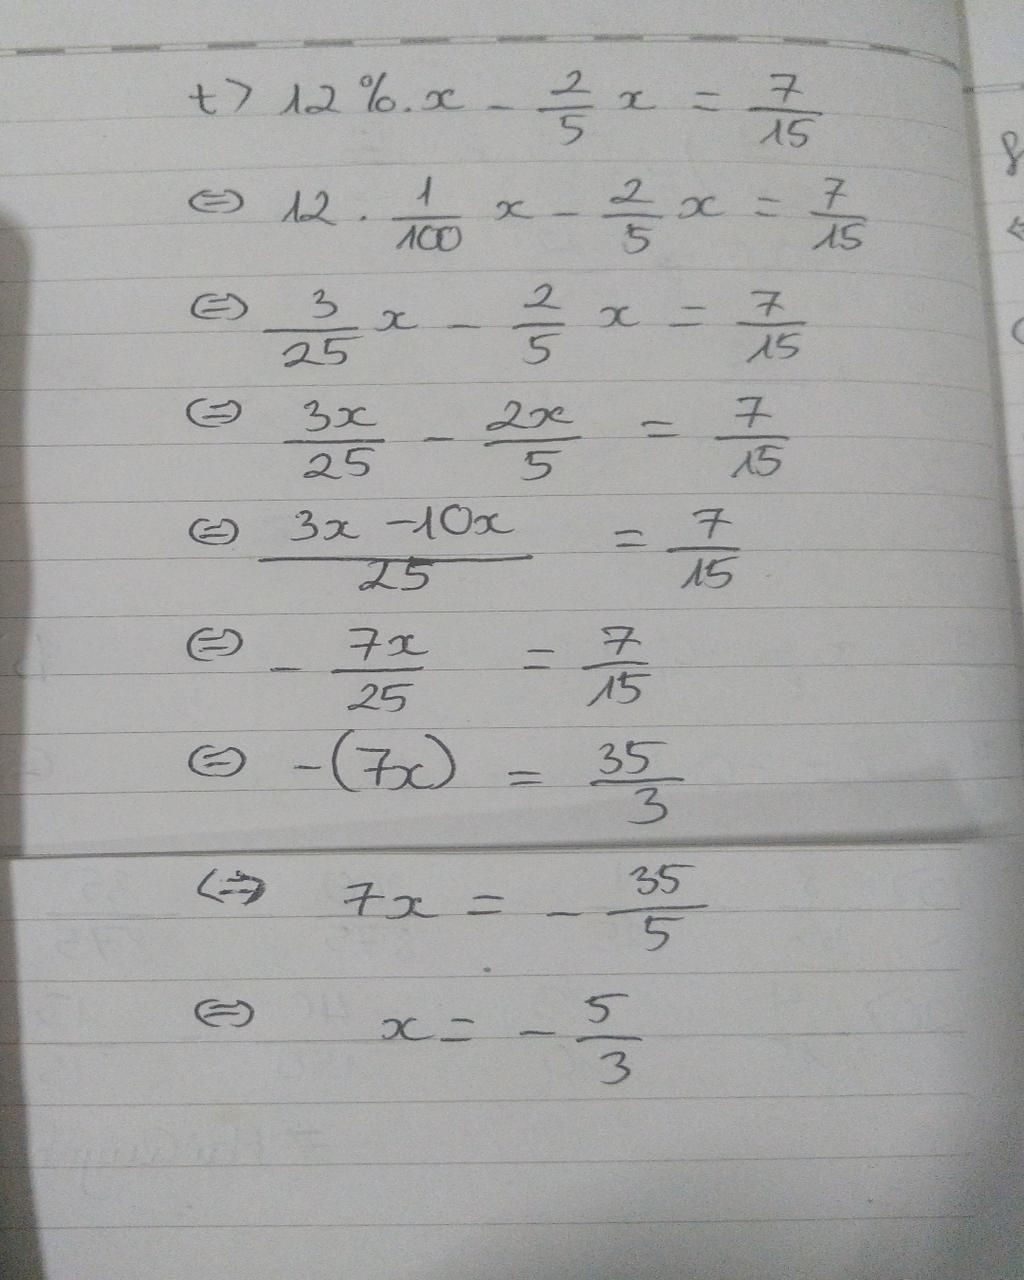 t> 12%.x - 2/5 x = 7/15
⇔ 12 . 1/100 x - 2/5 x = 7/15
⇔ 3/25 x - 2/5 x = 7/15
⇔ 3x/25 - 2x/5 = 7/15
⇔ (3x - 10x)/25 = 7/15
⇔ - 7x/25 = 7/15
⇔ -(7x) = 35/3
⇔ 7x = - 35/5
⇔ x = - 5/3